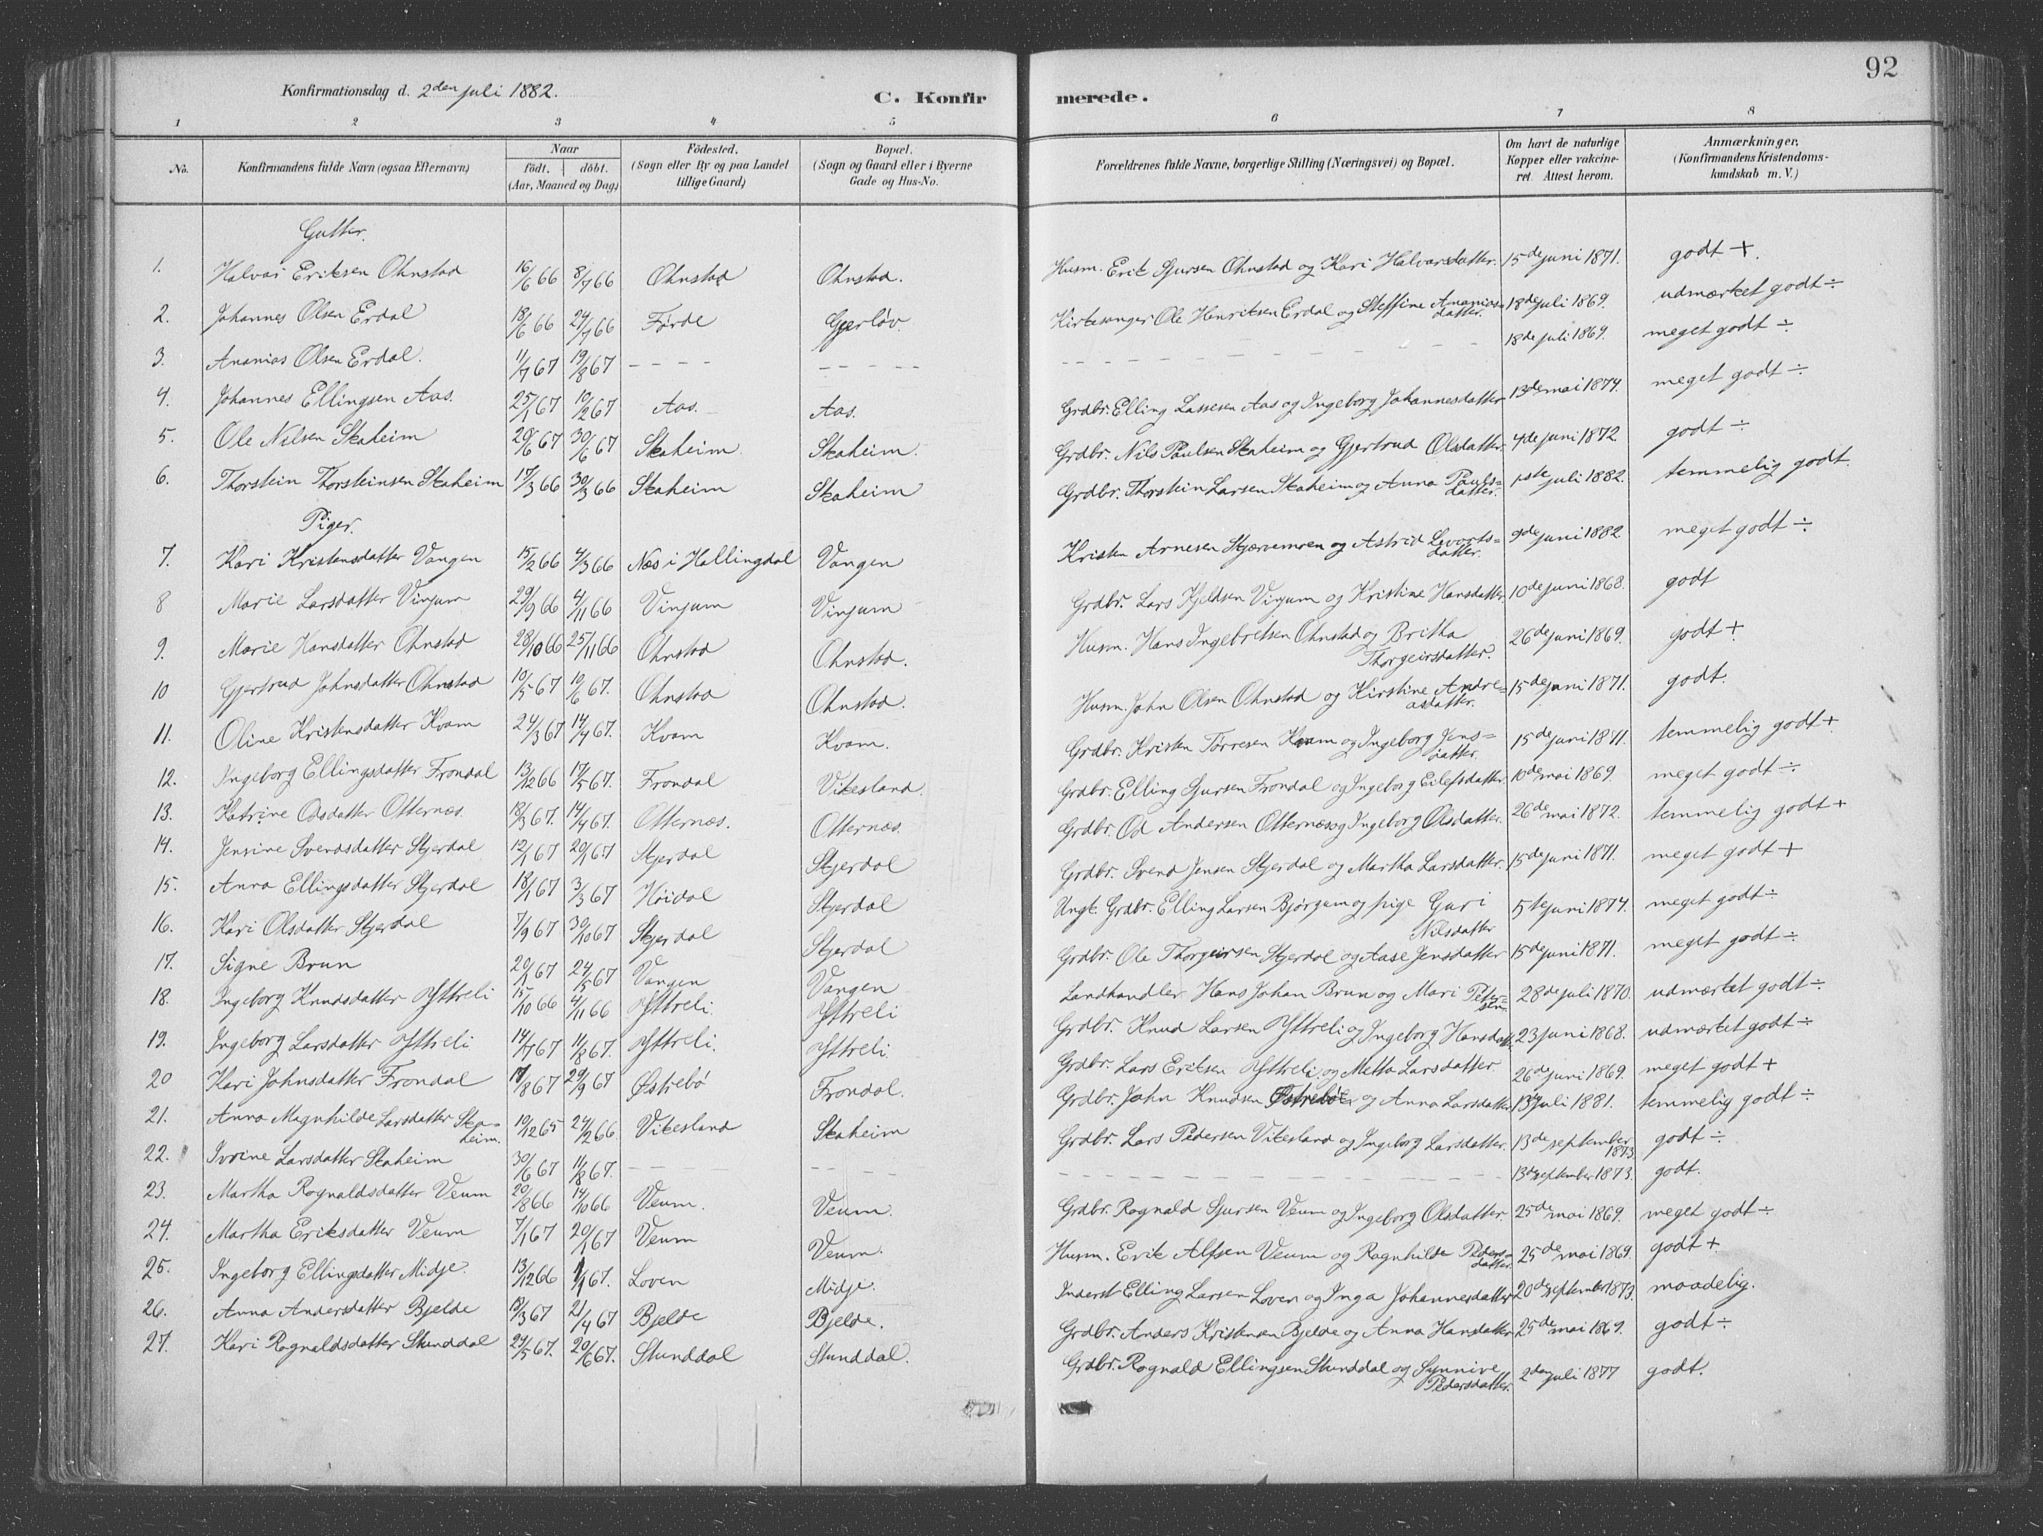 92
Konfirmationsdag d. 2den juli 1882.
C. Konfirmerede.
1 2 3 4 5 6 7 8
No.
Konfirmandens fulde Navn (ogsaa Efternavn)
Naar
født. døbt.
(Aar, Maaned og Dag)
Födested.
(Sogn eller By og paa Landet
tillige Gaard)
Bopæl.
(Sogn og Gaard eller i Byerne
Gade og Hus-No.
Forældrenes fulde Navne, borgerlige Stilling (Næringsvei) og Bopæl.
Om havt de naturlige
Kopper eller vakcine-
ret. Attest herom.
Anmærkninger.
(Konfirmandens Kristendoms-
kundskab m. V.)
Gutter.
1. Halvar Eriksen Ohnstad 16/6 66 8/7 66 Ohnstad Ohnstad. Husm. Erik Sjursen Ohnstad og Kari Halvarsdatter. 15de juni 1871. godt +.
2. Johannes Olsen Erdal 18/6 66 24/7 66 Førde Gjerløv. Kirkesanger Ole Henriksen Erdal og Steffine Ananias-datter. 18de juli 1869. udmærket godt ÷
3. Ananias Olsen Erdal. 11/7 67 19/8 67 - - - - - - - - - - - - 18de juli 1869. meget godt ÷
4. Johannes Ellingsen Aas. 25/1 67 10/2 67 Aas. Aas. Grdbr. Elling Lassesen Aas og Ingeborg Johannesdatter 13de mai 1874. meget godt ÷
5. Ole Nilsen Skaheim 20/6 67 30/6 67 Skaheim Skaheim. Grdbr. Nils Paulsen Skaheim og Gjertrud Olsdatter. 4de juni 1872. godt ÷
6. Thorstein Thorsteinsen Skaheim 17/3 66 30/3 66 Skaheim Skaheim Grdbr. Thorstein Larsen Skaheim og Anna Pauls-datter. 1ste juli 1882. temmelig godt.
Piger.
7. Kari Kristensdatter Vangen 15/2 66 4/3 66 Næs i Hallingdal Vangen Kristen Arnesen Skjervemoen og Astrid Levorts-datter. 9de juni 1882 meget godt ÷
8 Marie Larsdatter Vinjum 29/9 66 4/11 66 Vinjum Vinjum Grdbr. Lars Kjeldsen Vinjum og Kristine Hansdatter. 10de juni 1868. godt
9. Marie Hansdatter Ohnstad 28/10 66 25/11 66 Ohnstad Ohnstad. Husm. Hans Ingebretsen Ohnstad og Britha Thorgeirsdatter. 26de juni 1869. godt +
10 Gjertrud Johnsdatter Ohnstad 10/5 67 10/6 67. Ohnstad Ohnstad. Husm. John Olsen Ohnstad og Kirstine Andre-asdatter. 15de juni 1871. godt.
11. Oline Kristensdatter Kvam 24/3 67 14/4 67. Kvam Kvam. Grdbr. Kristen Tørresen Kvam og Ingeborg Jens-datter. 15de juni 1871. temmelig godt +
12. Ingeborg Ellingsdatter Frondal 13/12 66 17/5 67. Frondal Vikesland. Grdbr. Elling Sjursen Frondal og Ingeborg Eilefsdatter 10de mai 1869. meget godt ÷
13. Katrine Odsdatter Otternæs 18/3 67. 14/4 67. Otternæs. Otternæs. Grdbr. Od Andersen Otternæs og Ingeborg Olsdatter. 26de mai 1872. temmelig godt +
14. Jensine Svendsdatter Skjerdal 12/1 67 20/1 67. Skjerdal Skjerdal Grdbr. Svend Jensen Skjerdal og Martha Larsdatter. 15de juni 1871. meget godt +
15. Anna Ellingsdatter Skjerdal 18/1 67 3/3 67 Høidal Skjerdal Ungk. Grdbr. Elling Larsen Bjørgum og pige Guri Nilsdatter 5te juni 1874. meget godt ÷
16. Kari Olsdatter Skjerdal 7/9 67 30/10 67 Skjerdal Skjerdal Grdbr. Ole Thorgeirsen Skjerdal og Aase Jensdatter 15de juni 1871. meget godt ÷
17. Signe Brun 20/1 67 24/5 67 Vangen Vangen Landhandler Hans Johan Brun og Mari Peter-sen 28de juli 1870. udmærket godt ÷
18. Ingeborg Knudsdatter Yttreli 15/10 66 4/11 66 Yttreli Yttreli Grdbr. Knud Larsen Yttreli og Ingeborg Hansdatt. 23 juni 1868. udmærket godt ÷
19. Ingeborg Larsdatter Yttreli 14/7 67 11/8 67. Yttreli. Yttreli. Grdbr. Lars Eriksen Yttreli og Metta Larsdatter 26de juni 1869. meget godt +
20 Kari Johnsdatter Frondal 17/8 67 29/9 67 Østrebø Frondal. Grdbr. John Knudsen Østrebø og Anna Larsdatter 13de juli 1881. temmelig godt ÷
21. Anna Magnhilde Larsdatter Ska-heim. 10/12 65 24/2 66 Vikesland Skaheim Grdbr. Lars Pedersen Vikesland og Ingeborg Larsdatter. 13de september 1873. godt ÷
22. Ivrine Larsdatter Skaheim 30/6 67 11/8 67. - - - - - - - - - - - - 13de september 1873. godt.
23. Martha Rognaldsdatter Veum 20/8 66 14/10 66 Veum. Veum. Grdbr. Rognald Sjursen Veum og Ingeborg Olsdatter. 25de mai 1869. meget godt ÷
24. Martha Eriksdatter Veum 7/1 67 20/1 67 Veum Veum. Husm. Erik Alfsen Veum og Ragnhilde Peders-datter. 25de mai 1869. godt +
25. Ingeborg Ellingsdatter Midje. 13/12 66 1/1 67. Loven Midje. Inderst Elling Larsen Loven og Inga Johannesdatter 20de september 1873. maadelig.
26. Anna Andersdatter Bjelde 18/3 67 21/4 67 Bjelde Bjelde. Grdbr. Anders Kristensen Bjelde og Anna Hansdatter 25de mai 1869. godt ÷
27. Kari Rognaldsdatter Stunddal 24/5 67. 20/6 67. Stunddal Stunddal. Grdbr. Rognald Ellingsen Stunddal og Synnive Pedersdatter. 2den juli 1877 godt.